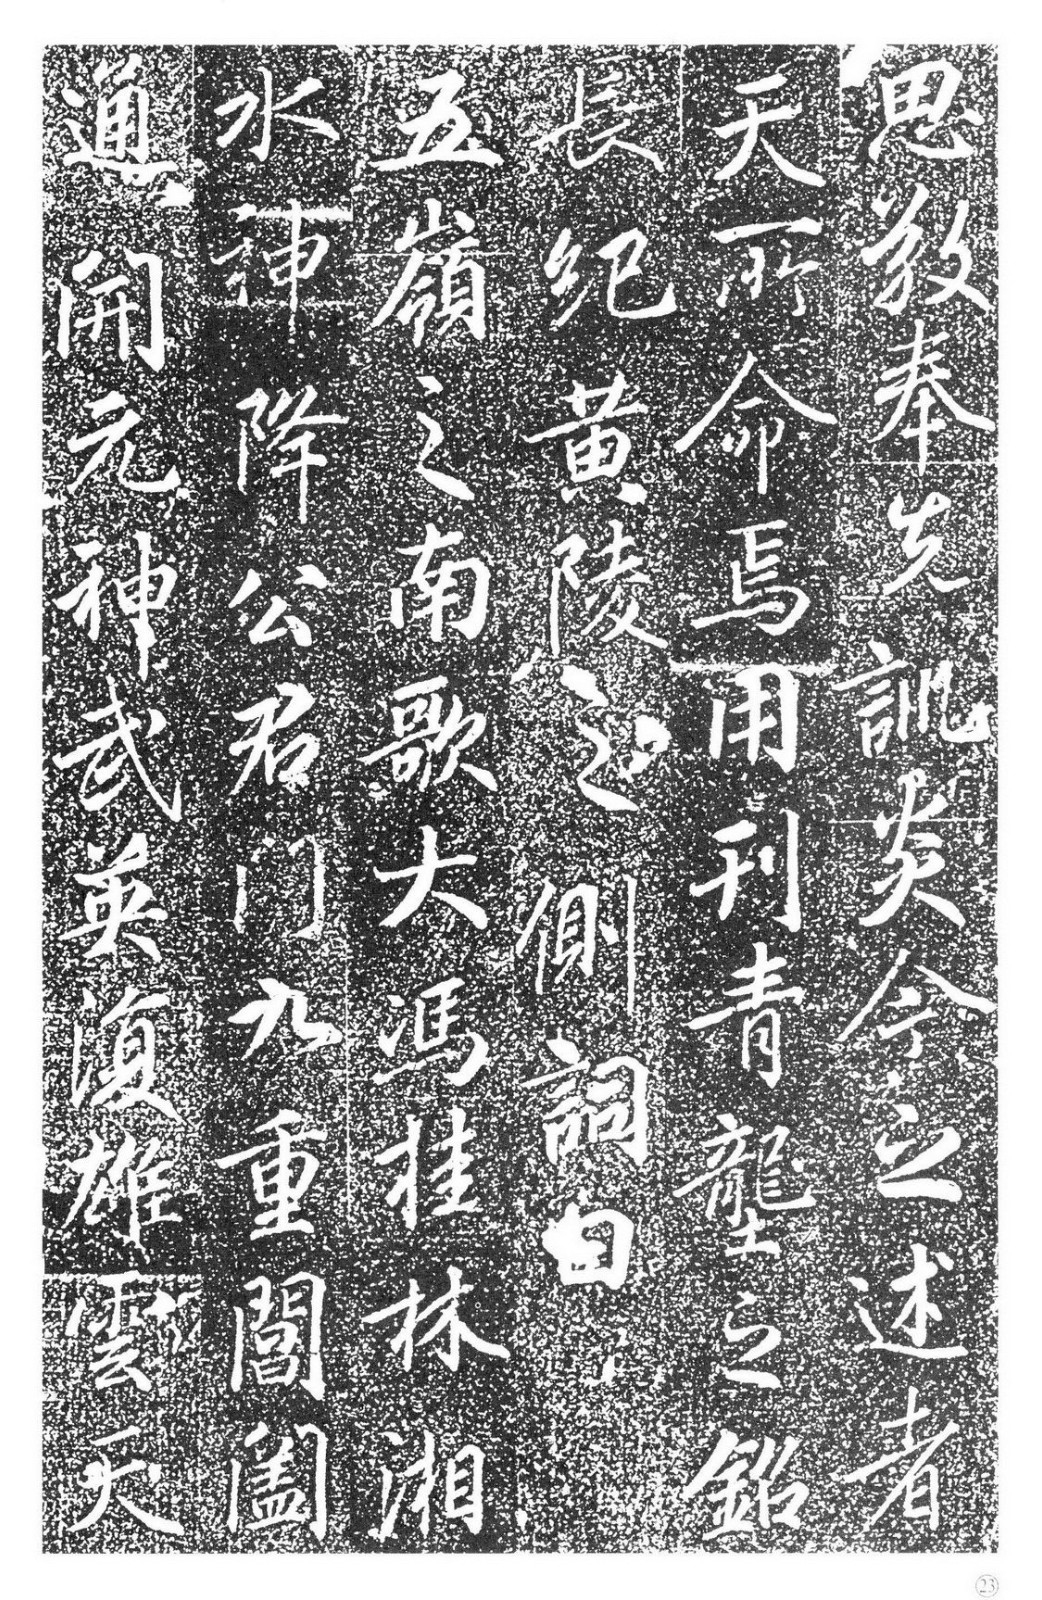 思教奉先訓矣今之述者
天所命焉用刊青壟之銘
長紀黄陵之側詞曰
五嶺之南歌大馮桂林湘
水神降公君門九重閶闔
通開元神武英復雄雲天
23